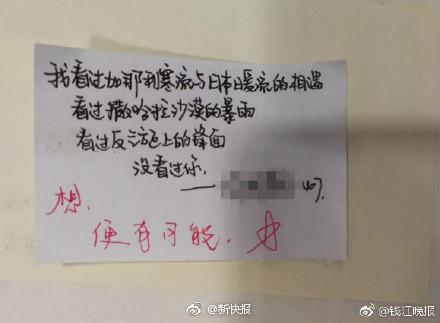 我看过加那利寒流与日本暖流的相遇
看过撒哈拉沙漠的暴雨
看过反气旋上的锋面
没看过你.
——
想.
便有可能.
@新快报
@钱江晚报